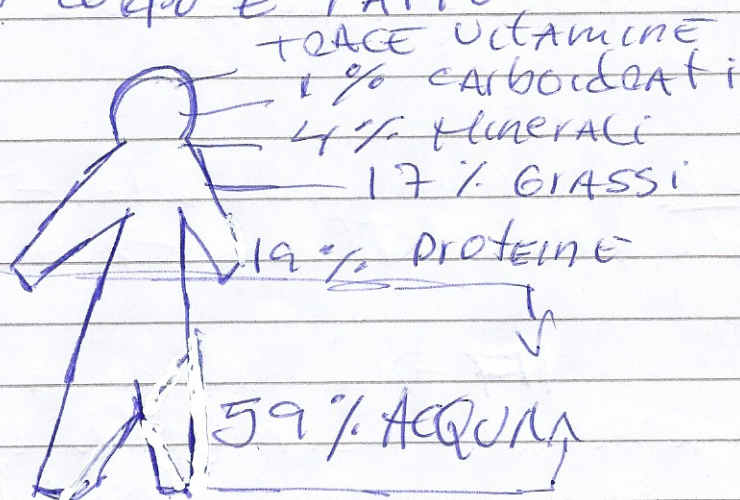 CORPO È FATTO
TRACE VitAminE
1 % CARboidRAti
4 % MinERALi
17 % GrASSi
19 % ProtEinE
59 % ACQUA